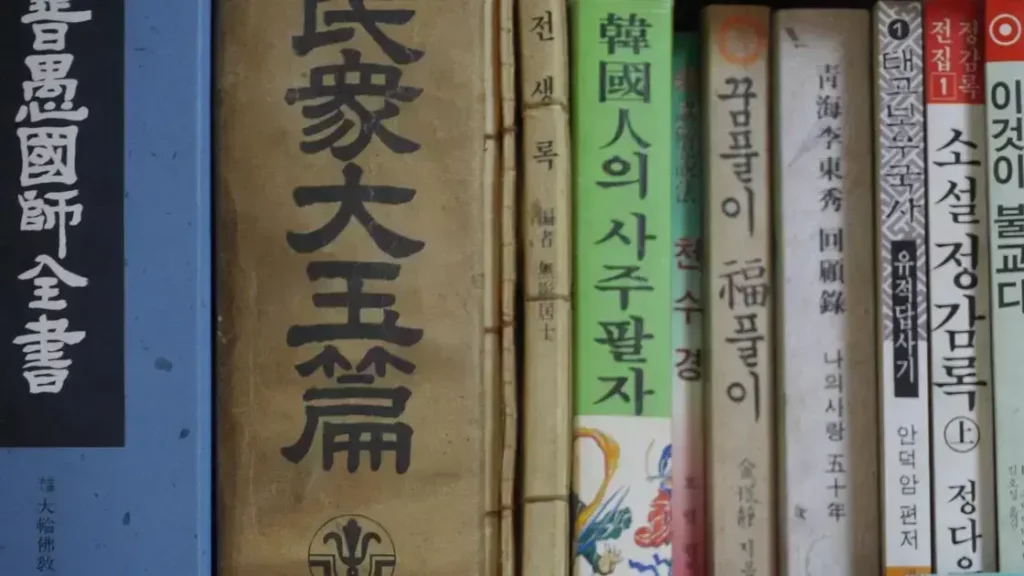 普愚國師全書
大輪佛敎
民衆大玉篇
전생록
編者 無眼居士
韓國人의 사주팔자
천수경
꿈풀이 福풀이
靑海李東秀 回顧錄
나의사랑 五十年
1 태고보우국사
유적답사기
안덕암 편저
정감록
전집 1
소설 정감록 上
정다
이것이 불교다